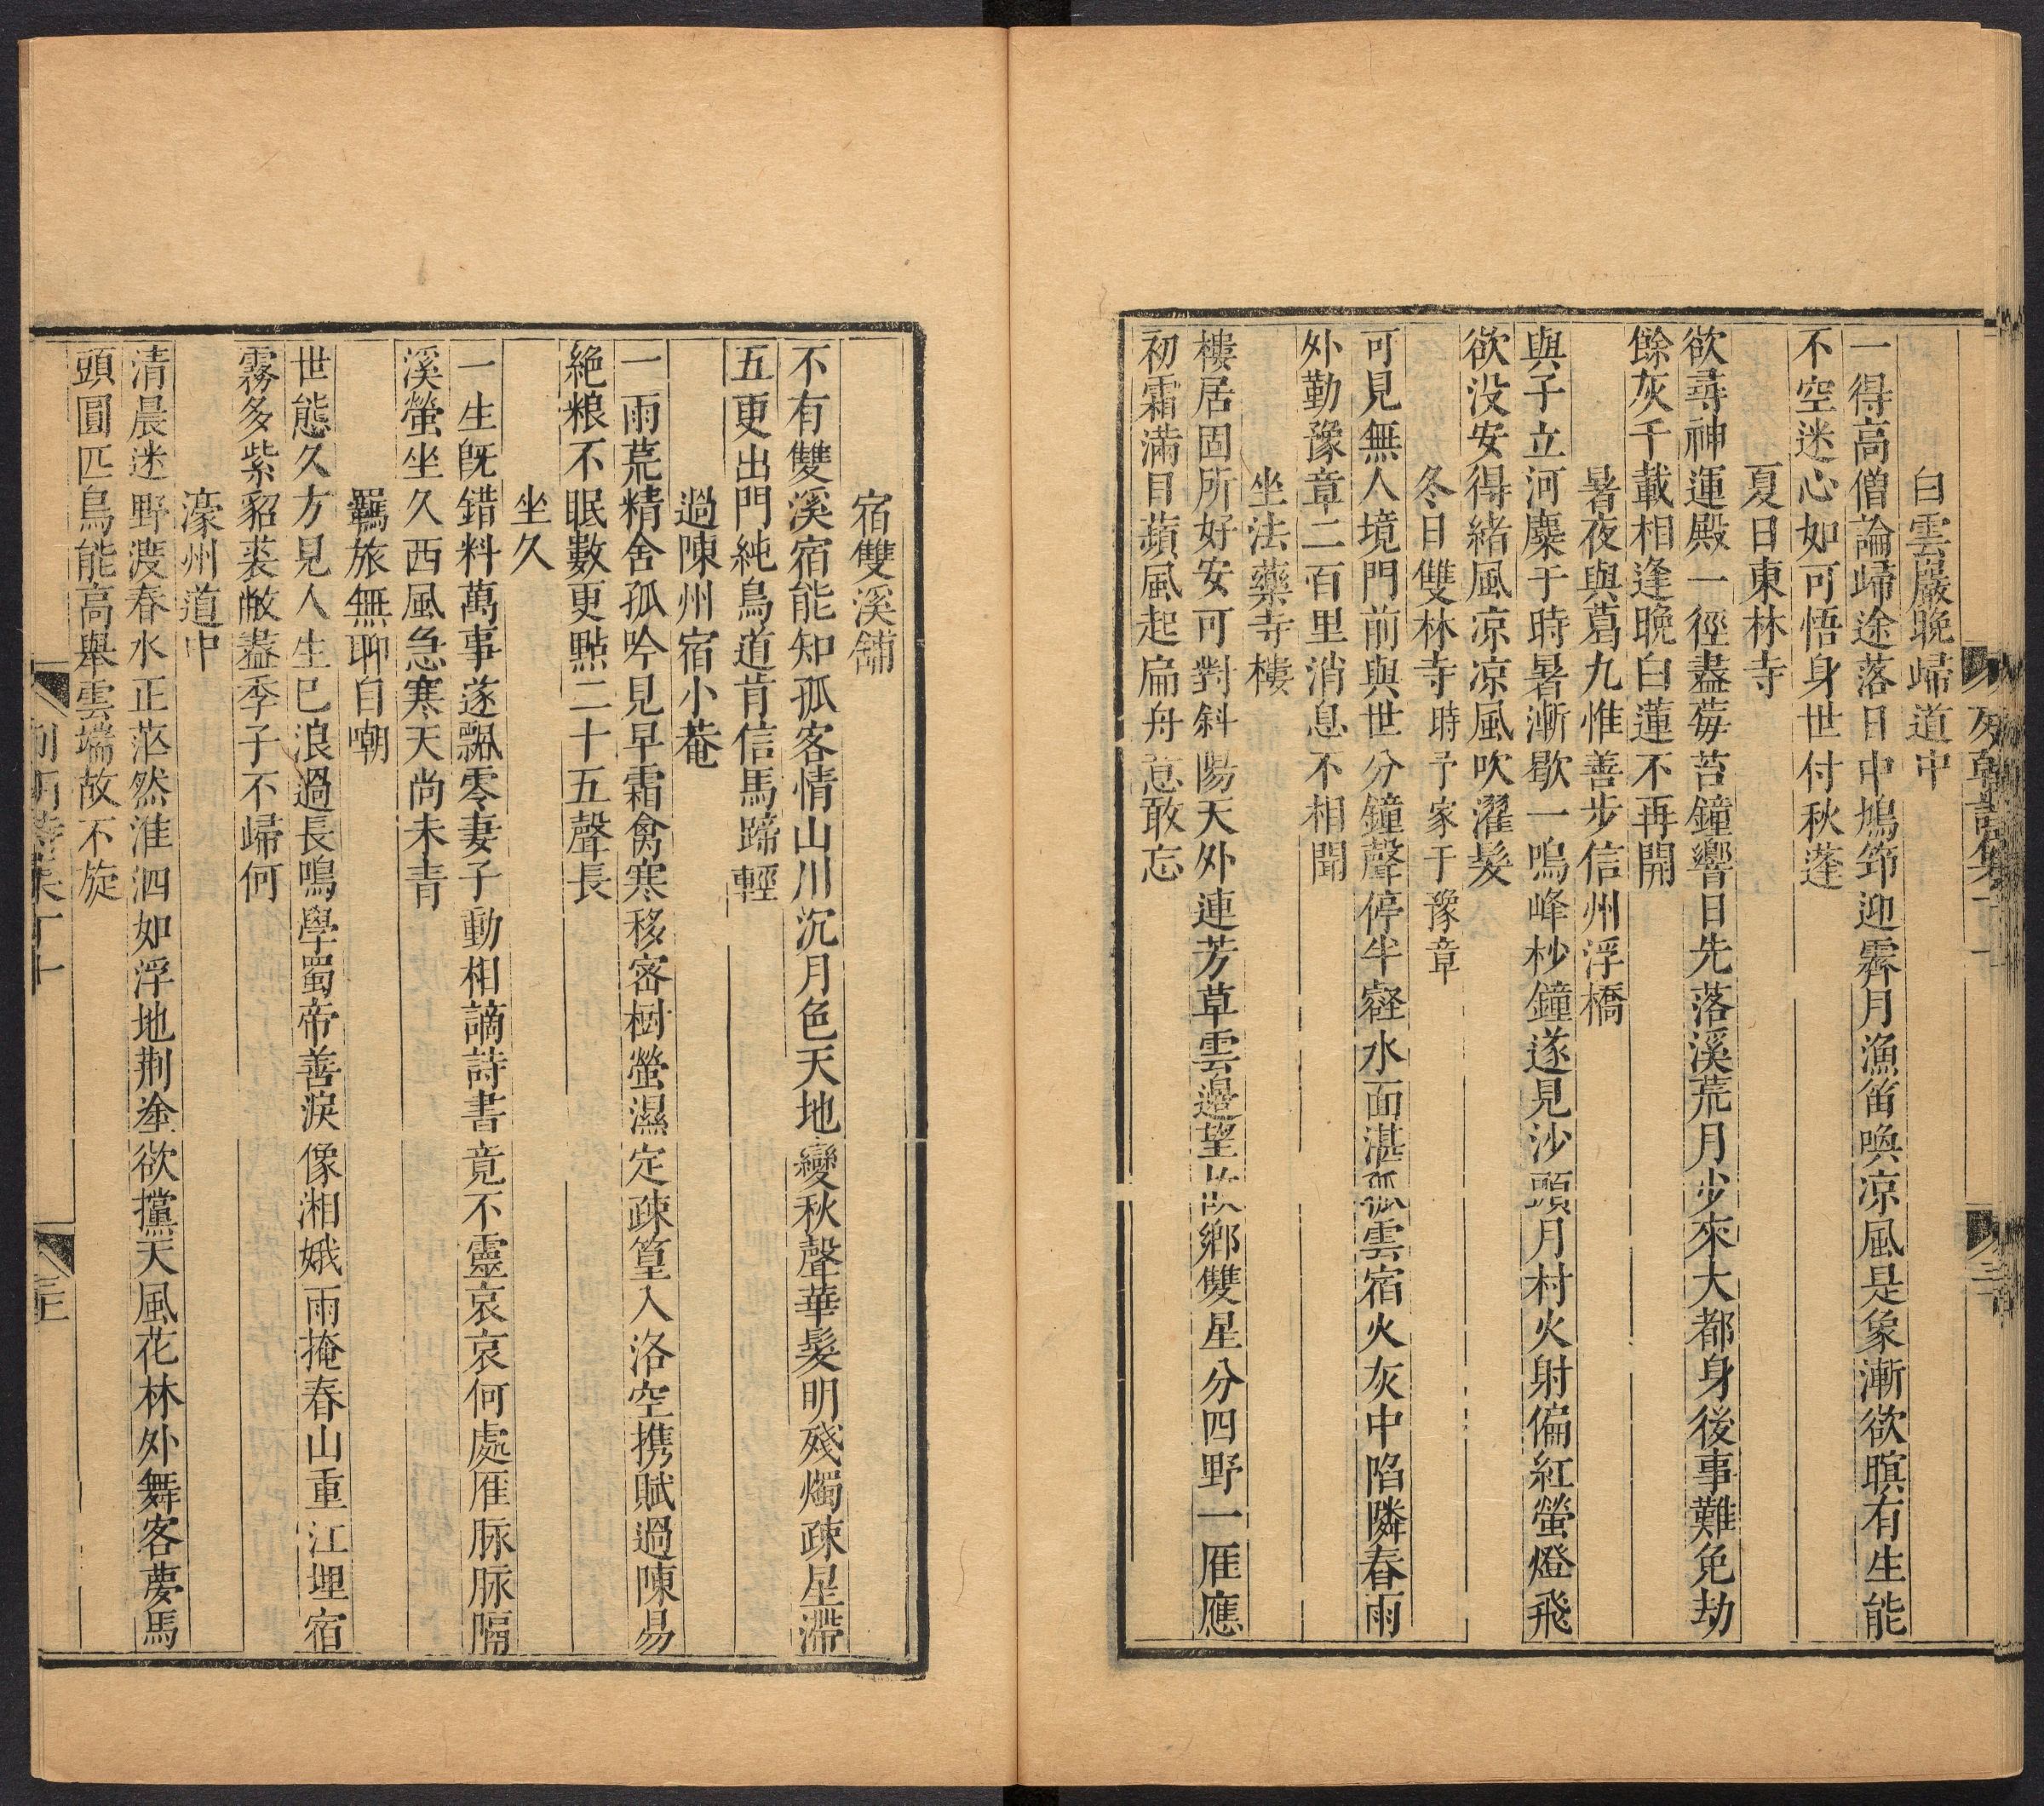 白雲巖晚歸道中
一得高僧論歸途落日中鳩笻迎霽月漁笛喚凉風是象漸欲暝有生能
不空迷心如可悟身世付秋蓬
夏日東林寺
欲尋神運殿一徑蓋莓苔鐘響日先落溪荒月步來大都身後事難免劫
餘灰千載相逢晚白蓮不再開
暑夜與葛九惟善步信州浮橋
與子立河麋于時暑漸歇一鳴峰杪鐘遂見沙頭月村火射偏紅螢燈飛
欲没安得緒風凉凉風吹濯髮
冬日雙林寺時予家于豫章
可見無人境門前與世分鐘聲停半壑水面湛孤雲宿火灰中陷隣春雨
外勤豫章二百里消息不相聞
坐法藥寺樓
樓居固所好安可對斜陽天外連芳草雲邉望故鄉雙星分四野一雁應
初霜滿目蘋風起扁舟意敢忘
宿雙溪舖
不有雙溪宿能知孤客情山川沉月色天地變秋聲華髮明殘燭疎星滯
五更出門純鳥道肯信馬蹄輕
過陳州宿小菴
一雨荒精舍孤吟見早霜禽寒移宻樹螢濕定疎篁入洛空携賦過陳易
絶粮不眠數更點二十五聲長
坐久
一生旣錯料萬事遂飄零妻子動相謫詩書竟不靈哀哀何處雁脉脉隔
溪螢坐久西風急寒天尚未青
羈旅無聊自嘲
世態久方見人生已浪過長鳴學蜀帝善淚像湘娥雨掩春山重江埋宿
霧多紫貂裘敝盡季子不歸何
濠州道中
清晨迷野渡春水正茫然淮泗如浮地荆塗欲攩天風花林外舞客夢馬
頭圓匹鳥能高舉雲端故不旋